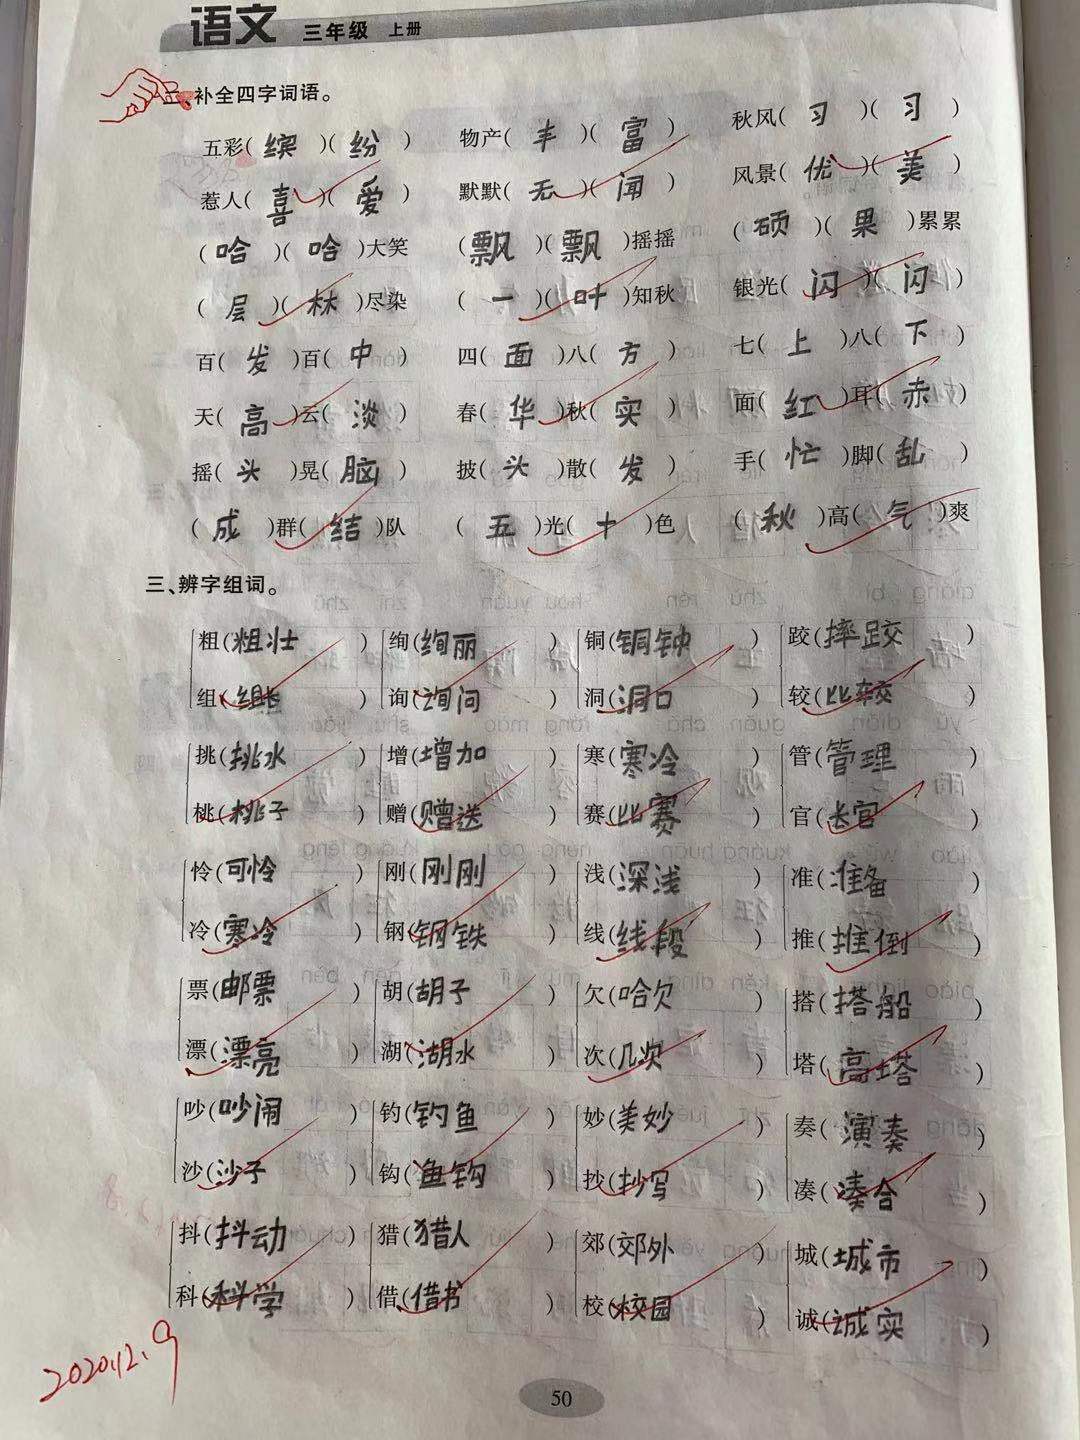 语文 三年级 上册
二、补全四字词语。
五彩(缤)(纷) 物产(丰)(富) 秋风(习)(习)
惹人(喜)(爱) 默默(无)(闻) 风景(优)(美)
(哈)(哈)大笑 (飘)(飘)摇摇 (硕)(果)累累
(层)(林)尽染 (一)(叶)知秋 银光(闪)(闪)
百(发)百(中) 四(面)八(方) 七(上)八(下)
天(高)云(淡) 春(华)秋(实) 面(红)耳(赤)
摇(头)晃(脑) 披(头)散(发) 手(忙)脚(乱)
(成)群(结)队 (五)光(十)色 (秋)高(气)爽
三、辨字组词。
粗(粗壮) 绚(绚丽) 铜(铜钟) 跤(摔跤)
组(组长) 询(询问) 洞(洞口) 较(比较)
挑(挑水) 增(增加) 寒(寒冷) 管(管理)
桃(桃子) 赠(赠送) 赛(比赛) 官(长官)
怜(可怜) 刚(刚刚) 浅(深浅) 准(准备)
冷(寒冷) 钢(钢铁) 线(线段) 推(推倒)
票(邮票) 胡(胡子) 欠(哈欠) 搭(搭船)
漂(漂亮) 湖(湖水) 次(几次) 塔(高塔)
吵(吵闹) 钓(钓鱼) 妙(美妙) 奏(演奏)
沙(沙子) 钩(鱼钩) 抄(抄写) 凑(凑合)
抖(抖动) 猎(猎人) 郊(郊外) 城(城市)
科(科学) 借(借书) 校(校园) 诚(诚实)
2020.12.9
50